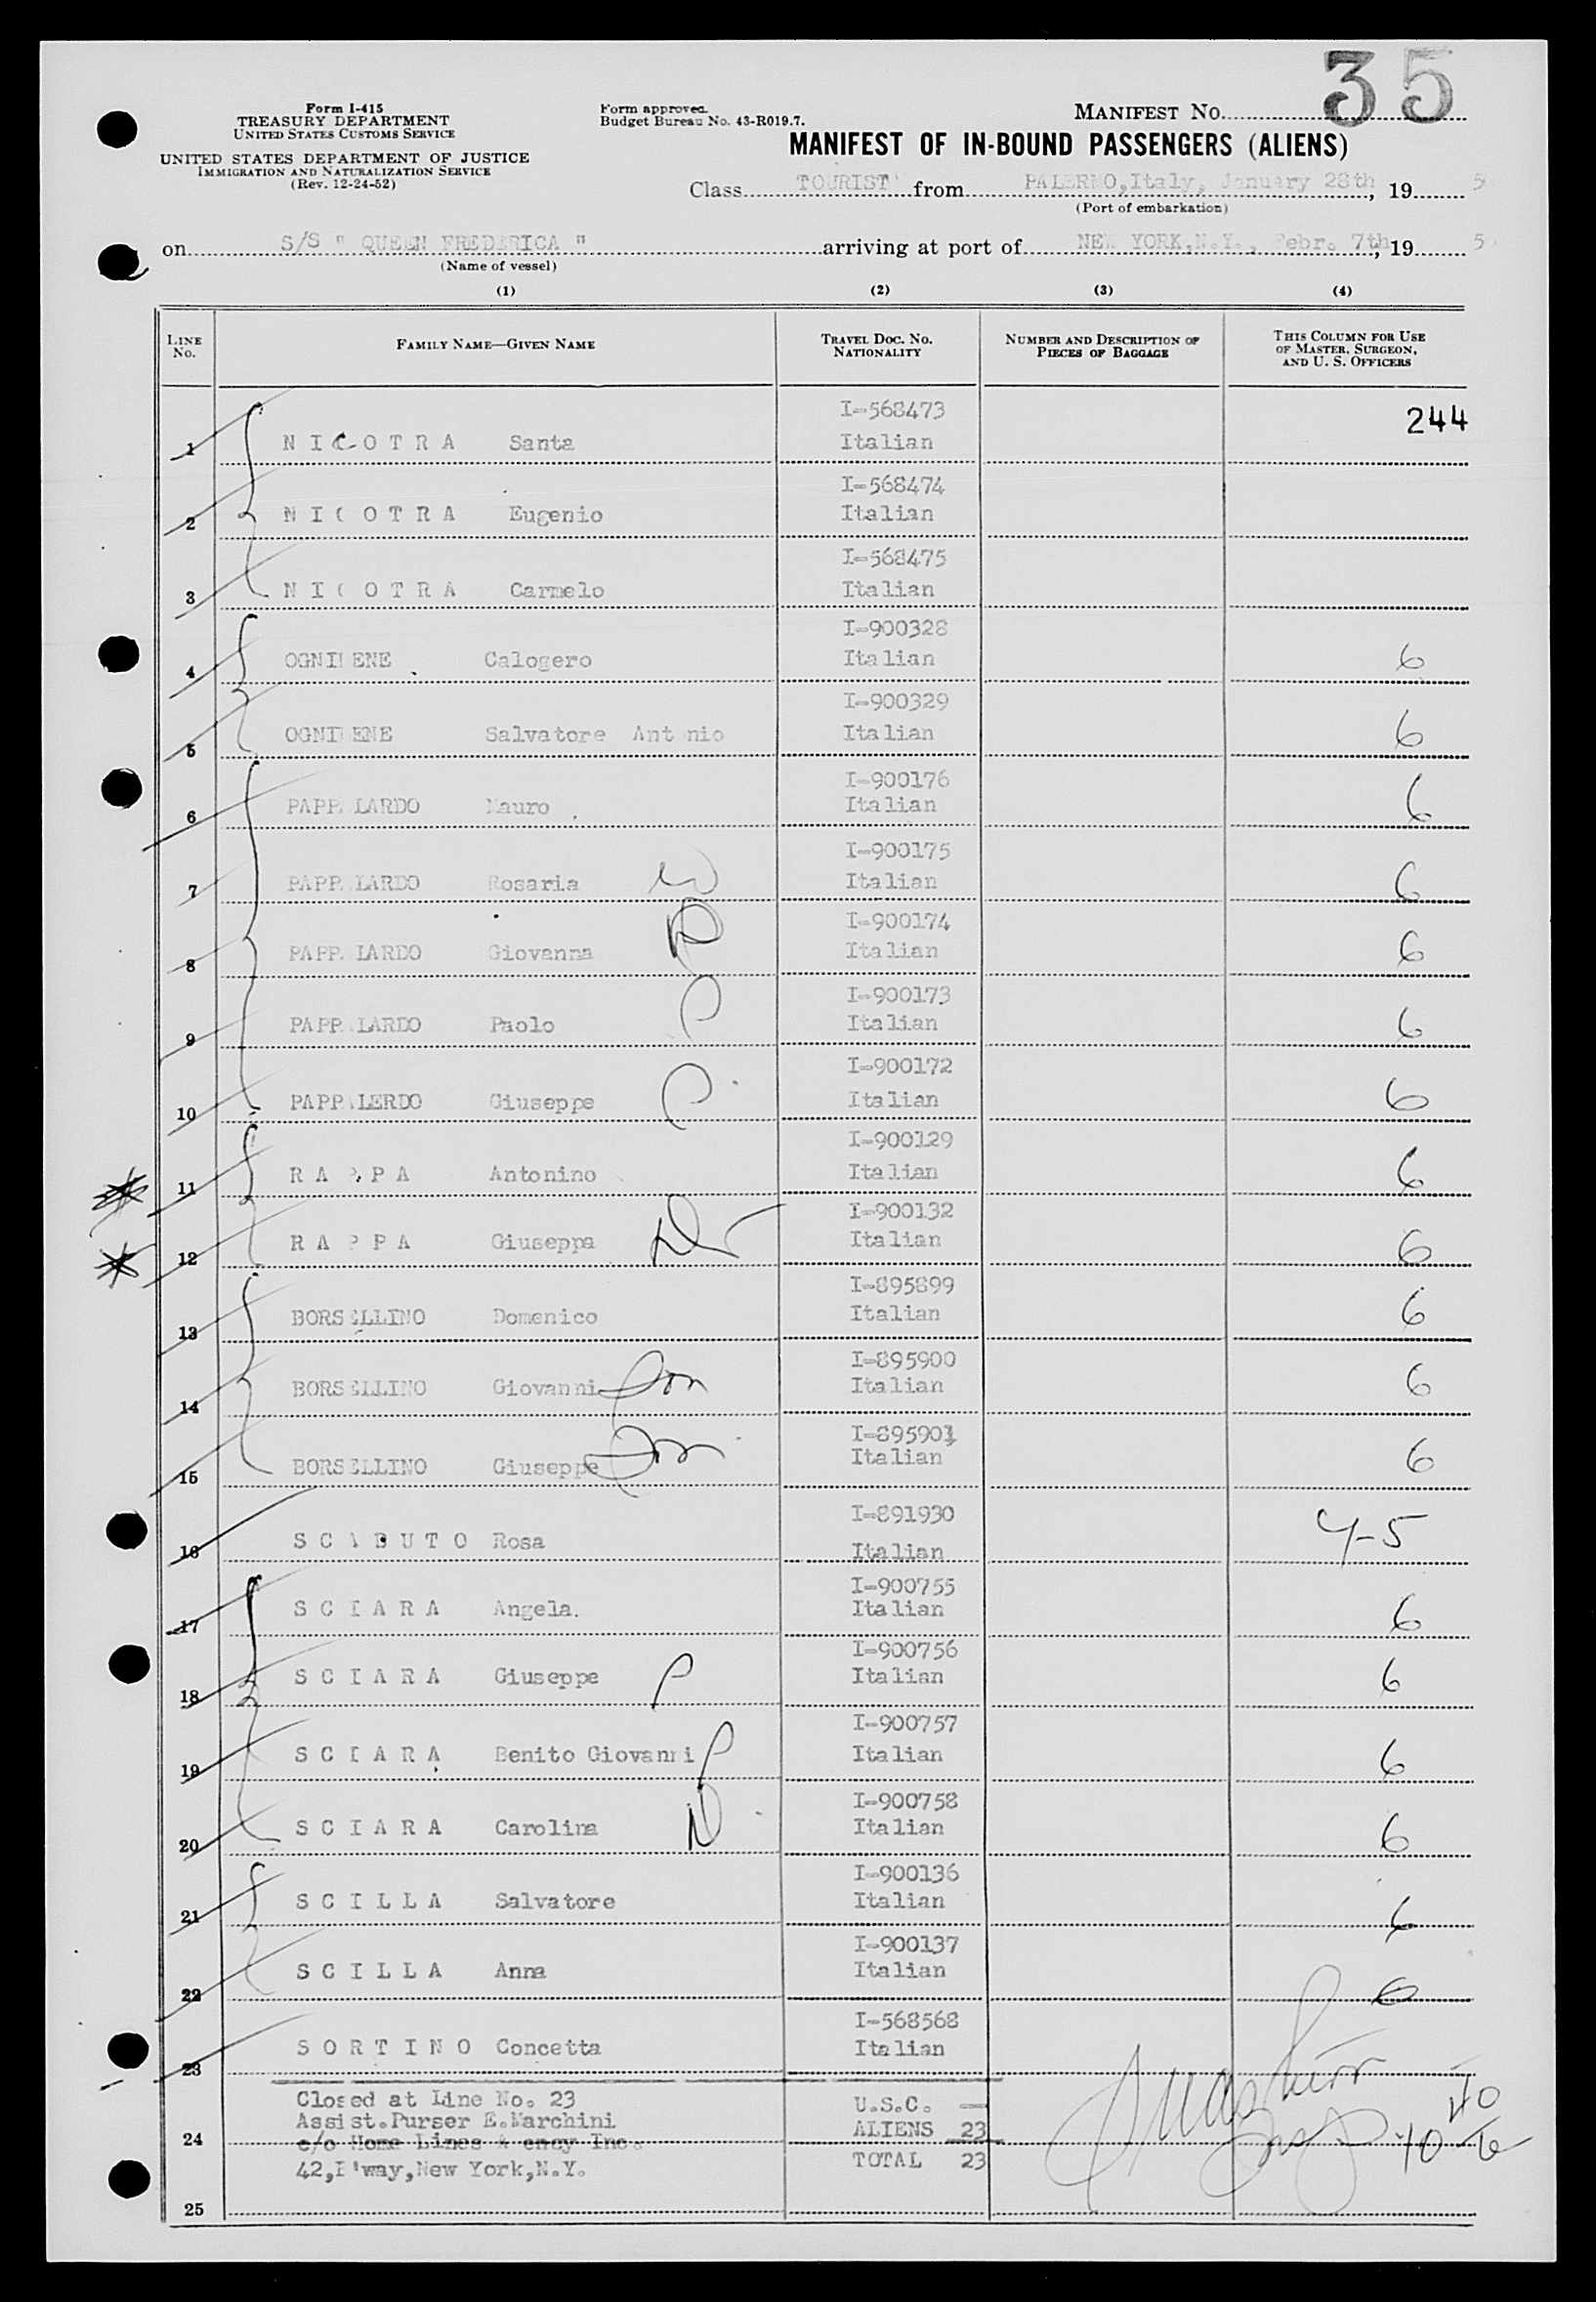 35
Form I-415
TREASURY DEPARTMENT
UNITED STATES CUSTOMS SERVICE
UNITED STATES DEPARTMENT OF JUSTICE
IMMIGRATION AND NATURALIZATION SERVICE
(Rev. 12-24-52)
Form approved.
Budget Bureau No. 43-R019.7.
MANIFEST NO.
MANIFEST OF IN-BOUND PASSENGERS (ALIENS)
Class TOURIST from PALERMO,Italy, January 28th, 19 5
(Port of embarkation)
on S/S " QUEEN FREDERICA " arriving at port of NEW YORK,N.Y., Febr. 7th, 19 5
(Name of vessel)
(1) (2) (3) (4)
LINE NO. FAMILY NAME—GIVEN NAME TRAVEL DOC. NO. NATIONALITY NUMBER AND DESCRIPTION OF PIECES OF BAGGAGE THIS COLUMN FOR USE OF MASTER, SURGEON, AND U. S. OFFICERS
I-568473 244
1 N I C O T R A Santa Italian
I-568474
2 N I C O T R A Eugenio Italian
I-568475
3 N I C O T R A Carmelo Italian
I-900328
4 OGNIBENE Calogero Italian 6
I-900329
5 OGNIBENE Salvatore Antonio Italian 6
I-900176
6 PAPPALARDO Mauro Italian 6
I-900175
7 PAPPALARDO Rosaria Italian 6
I-900174
8 PAPPALARDO Giovanna Italian 6
I-900173
9 PAPPALARDO Paolo Italian 6
I-900172
10 PAPPALERDO Giuseppe Italian 6
I-900129
11 R A P P A Antonino Italian 6
I-900132
12 R A P P A Giuseppa Italian 6
I-895899
13 BORSELLINO Domenico Italian 6
I-895900
14 BORSELLINO Giovanni Italian 6
I-895901
15 BORSELLINO Giuseppe Italian 6
I-891930
16 S C A B U T O Rosa Italian 4-5
I-900755
17 S C I A R A Angela. Italian 6
I-900756
18 S C I A R A Giuseppe Italian 6
I-900757
19 S C I A R A Benito Giovanni Italian 6
I-900758
20 S C I A R A Carolina Italian 6
I-900136
21 S C I L L A Salvatore Italian 6
I-900137
22 S C I L L A Anna Italian 6
I-568568
23 S O R T I N O Concetta Italian
Closed at Line No. 23 U.S.C. —
Assist.Purser E.Marchini ALIENS 23
24 c/o Home Lines Agency Inc.
42,B'way,New York,N.Y. TOTAL 23
25